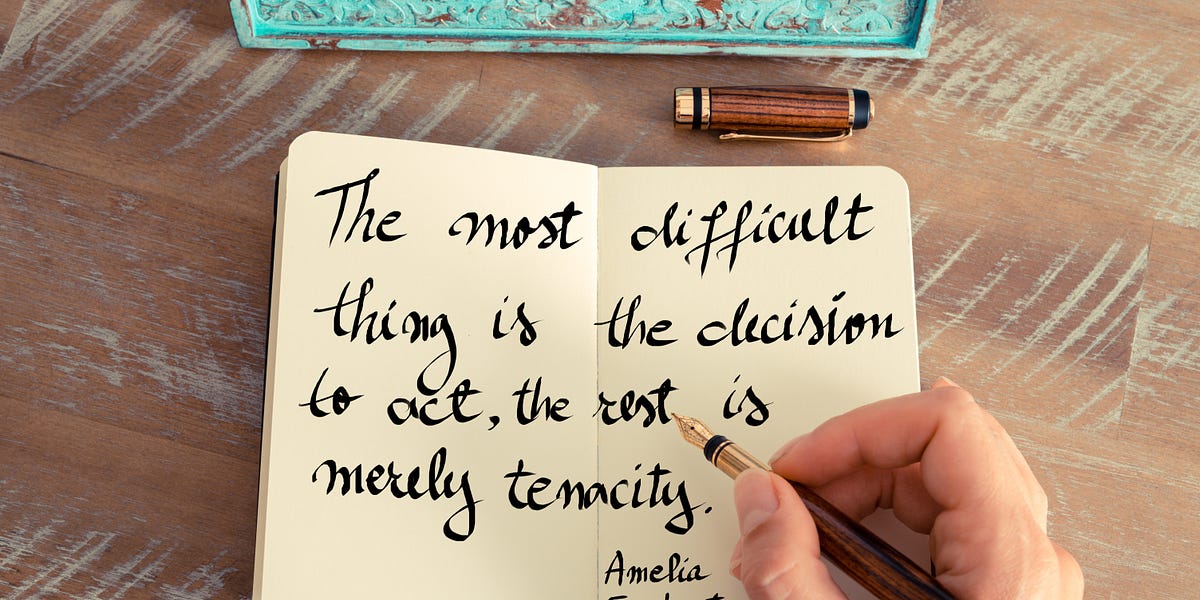 The most difficult
thing is the decision
to act, the rest is
merely tenacity.
Amelia